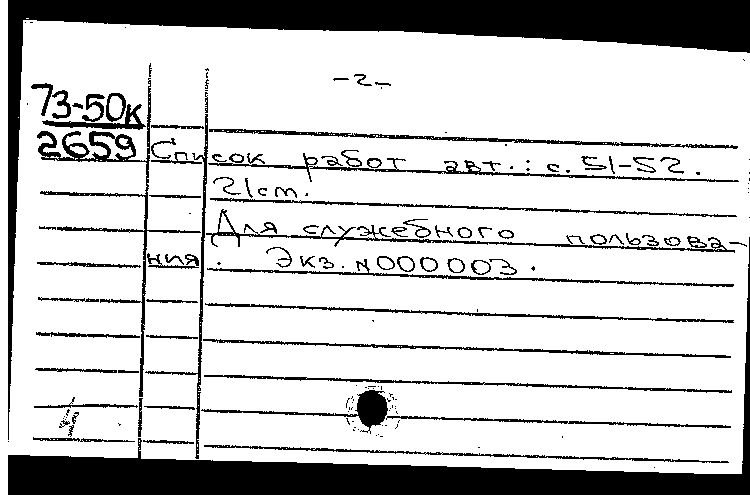 -2-
73-50к
2659
Список работ авт.: с. 51-52.
21 cm.
Для служебного пользова-
ния. Экз. N000003.
4